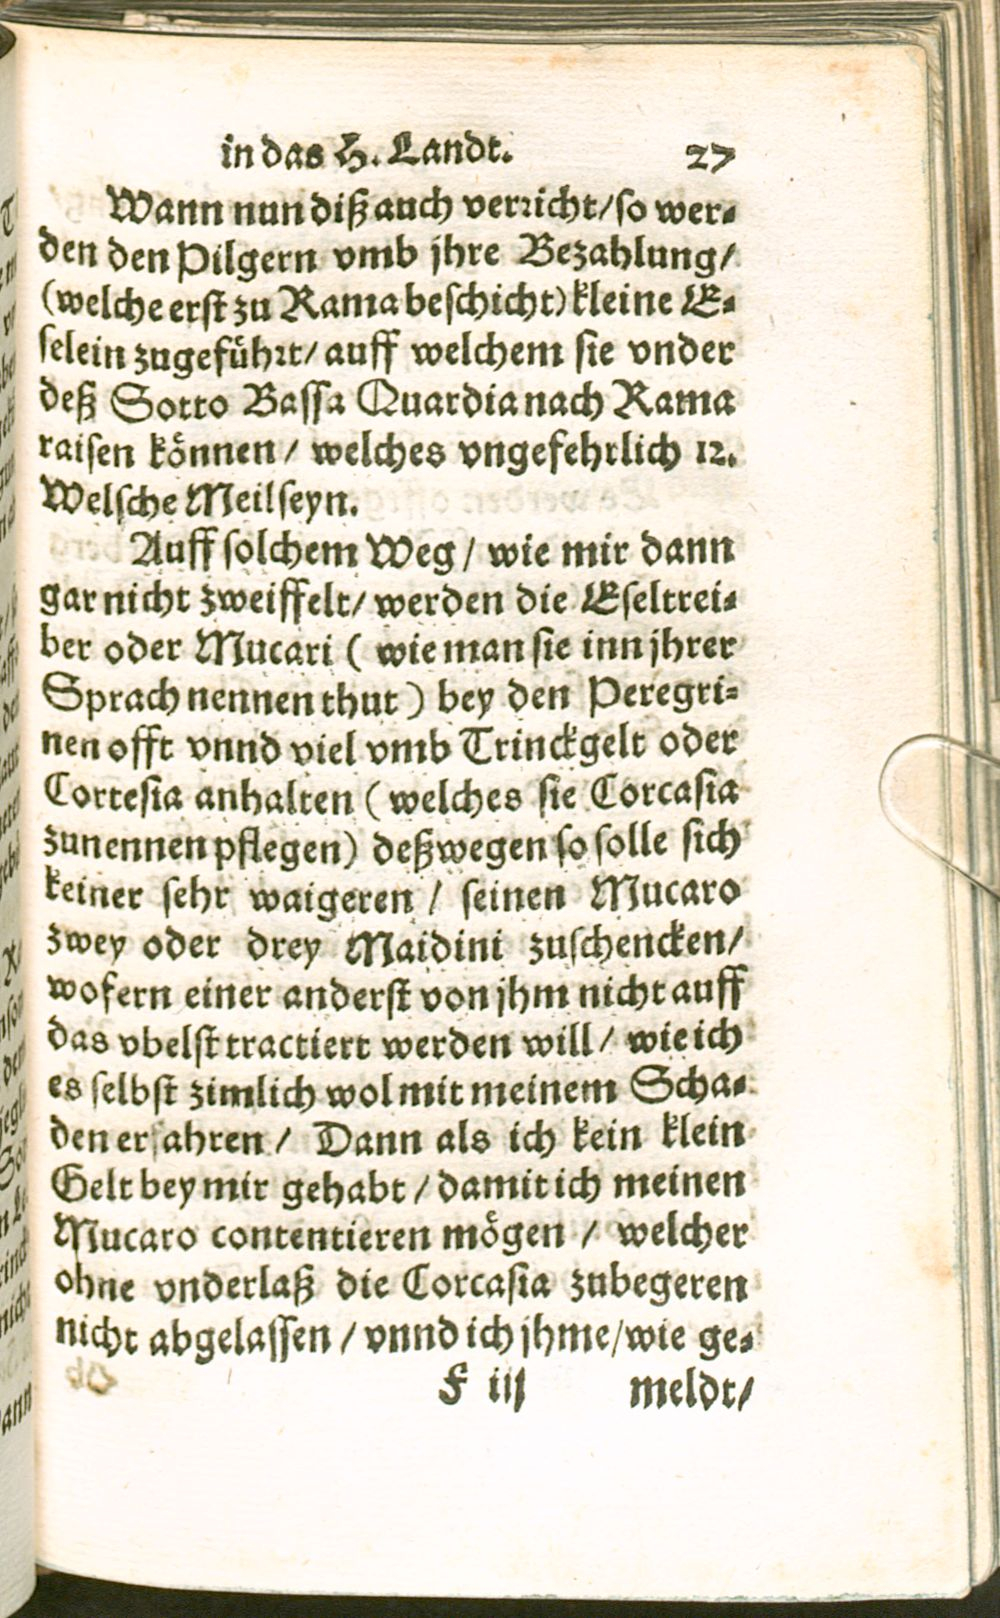 in das H. Landt. 27
Wann nun diß auch verricht/ so wer-
den den Pilgern vmb jhre Bezahlung/
(welche erst zu Rama beschicht) kleine E-
selein zugeführt/ auff welchem sie vnder
deß Sotto Bassa Quardia nach Rama
raisen können / welches vngefehrlich 12.
Welsche Meil seyn.
Auff solchem Weg / wie mir dann
gar nicht zweiffelt/ werden die Eseltrei-
ber oder Mucari ( wie man sie inn jhrer
Sprach nennen thut ) bey den Peregri-
nen offt vnnd viel vmb Trinckgelt oder
Cortesia anhalten ( welches sie Corcasia
zunennen pflegen) deßwegen so solle sich
keiner sehr waigeren / seinen Mucaro
zwey oder drey Maidini zuschencken/
wofern einer anderst von jhm nicht auff
das vbelst tractiert werden will / wie ich
es selbst zimlich wol mit meinem Scha-
den erfahren / Dann als ich kein klein
Gelt bey mir gehabt / damit ich meinen
Mucaro contentieren mögen / welcher
ohne vnderlaß die Corcasia zubegeren
nicht abgelassen / vnnd ich jhme/ wie ge-
F iij meldt/